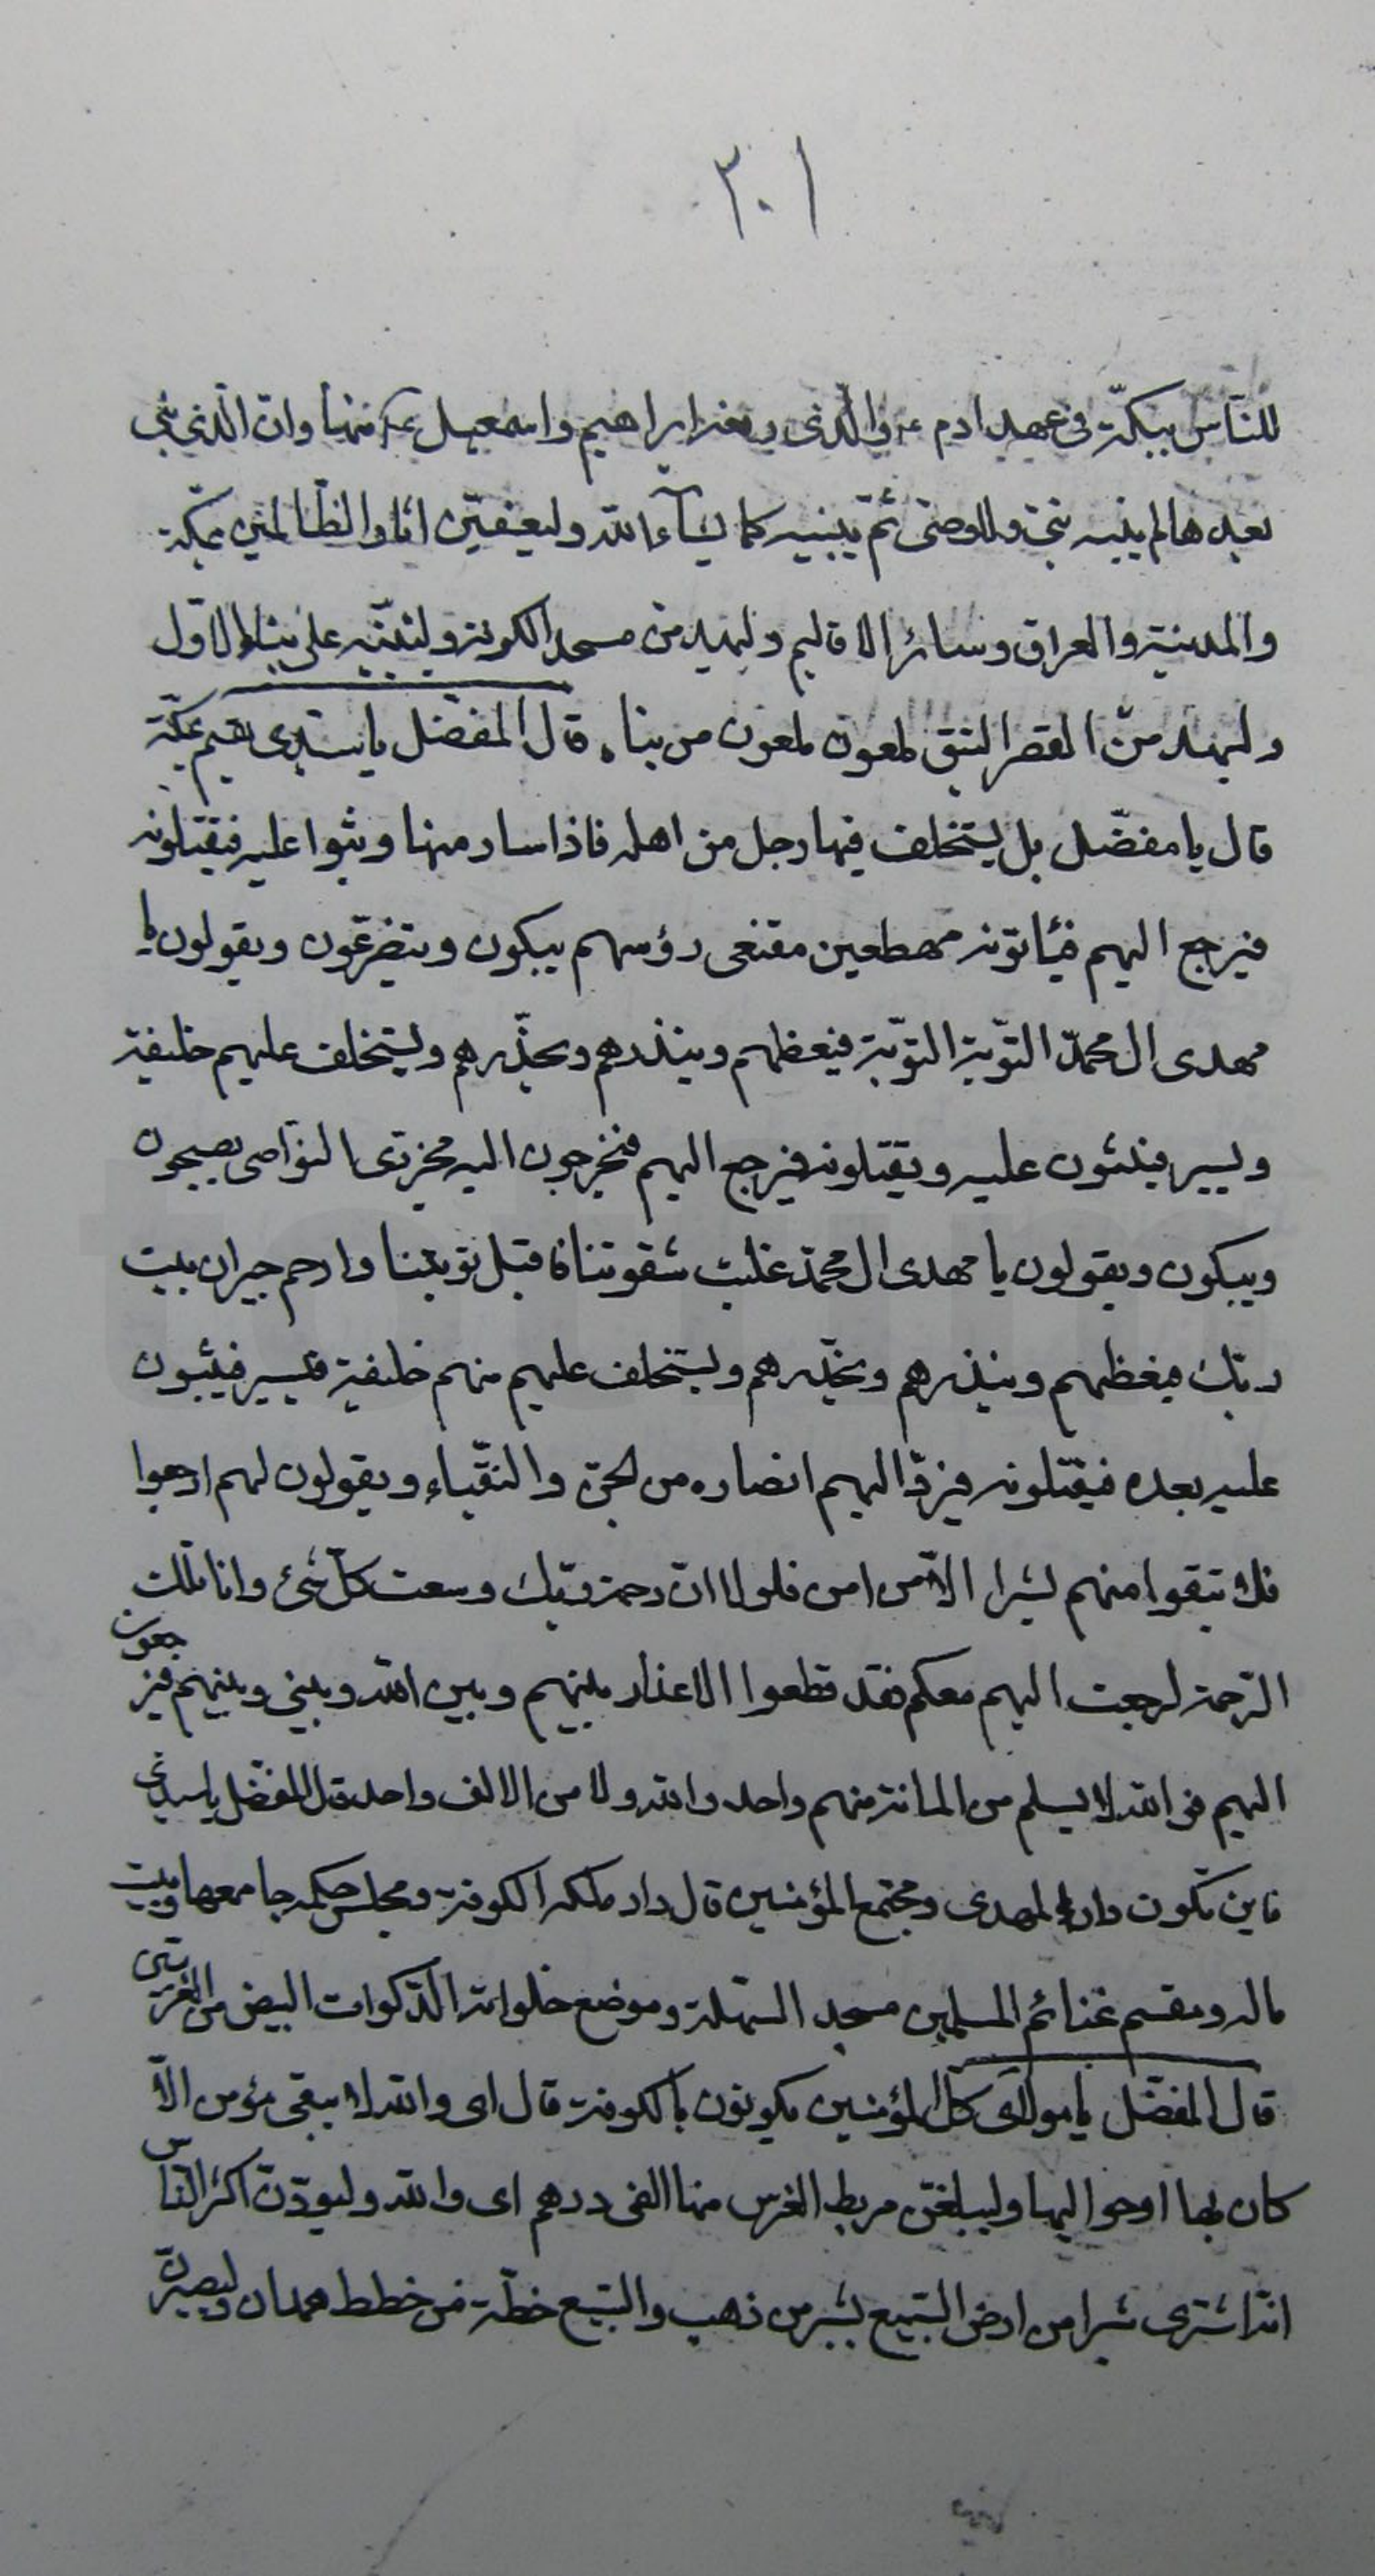 ٣٠١
للناس ببكّة فی عهد ادم ع والّذی رفعه ابراهیم واسمعیل ع منها وان الّذی بنی
بعدهما لم یبنه نبیّ ولا وصی ثمّ یبنیه کما یشآء الله ولیعفینّ اثار الظّالمین بمکّة
والمدینة والعراق وسائر الاقالیم ولیهدمنّ مسجد الکوفة ولیبنینّه علی بنائه الاوّل
ولیهدمنّ القصر العتیق ملعون ملعون من بناه قال المفضّل یا سیدی یقیم بمکّة
قال یا مفضّل بل یستخلف فیها رجل من اهله فاذا سار منها وثبوا علیه فیقتلونه
فیرجع الیهم فیاتونه مهطعین مقنعی رؤسهم یبکون ویتضرّعون ویقولون یا
مهدی ال محمّد التّوبة التّوبة فیعظهم وینذرهم ویحذّرهم ویستخلف علیهم خلیفة
ویسیر فیثبون علیه ویقتلونه فیرجع الیهم فیخرجون الیه مجزّی النّواصی یصیحون
ویبکون ویقولون یا مهدی ال محمّد غلبت شقوتنا فاقبل توبتنا وارحم جیران بیت
ربّك فیعظهم وینذرهم ویحذّرهم ویستخلف علیهم منهم خلیفة فیسیر فیثبون
علیه بعده فیقتلونه فیردّ الیهم انصاره من الجنّ والنّقباء ویقولون لهم ارجعوا
فلا تبقوا منهم بشرا الاّ من امن فلولا انّ رحمة ربّك وسعت کلّ شیٔ وانا تلك
الرّحمة لرجعت الیهم معکم فقد قطعوا الاعذار بینهم وبین الله وبینی وبینهم فیرجعون
الیهم فوالله لا یسلم من المائة منهم واحد والله ولا من الالف واحد قال المفضّل یا سیدی
فاین تکون دار المهدی ومجتمع المؤمنین قال دار ملکه الکوفة ومجلس حکمه جامعها وبیت
ماله ومقسم غنائم المسلمین مسجد السّهلة وموضع خلواته الذّکوات البیض من الغریّین
قال المفضّل یا مولای کلّ المؤمنین یکونون بالکوفة قال ای والله لا یبقی مؤمن الاّ
کان بها او حوالیها ولیبلغنّ مربط الفرس منها الفی درهم ای والله ولیودّنّ اکثر النّاس
انّه اشتری شبرا من ارض السّبیع بشبر من ذهب والسّبیع خطّة من خطط همدان ولیصیرنّ